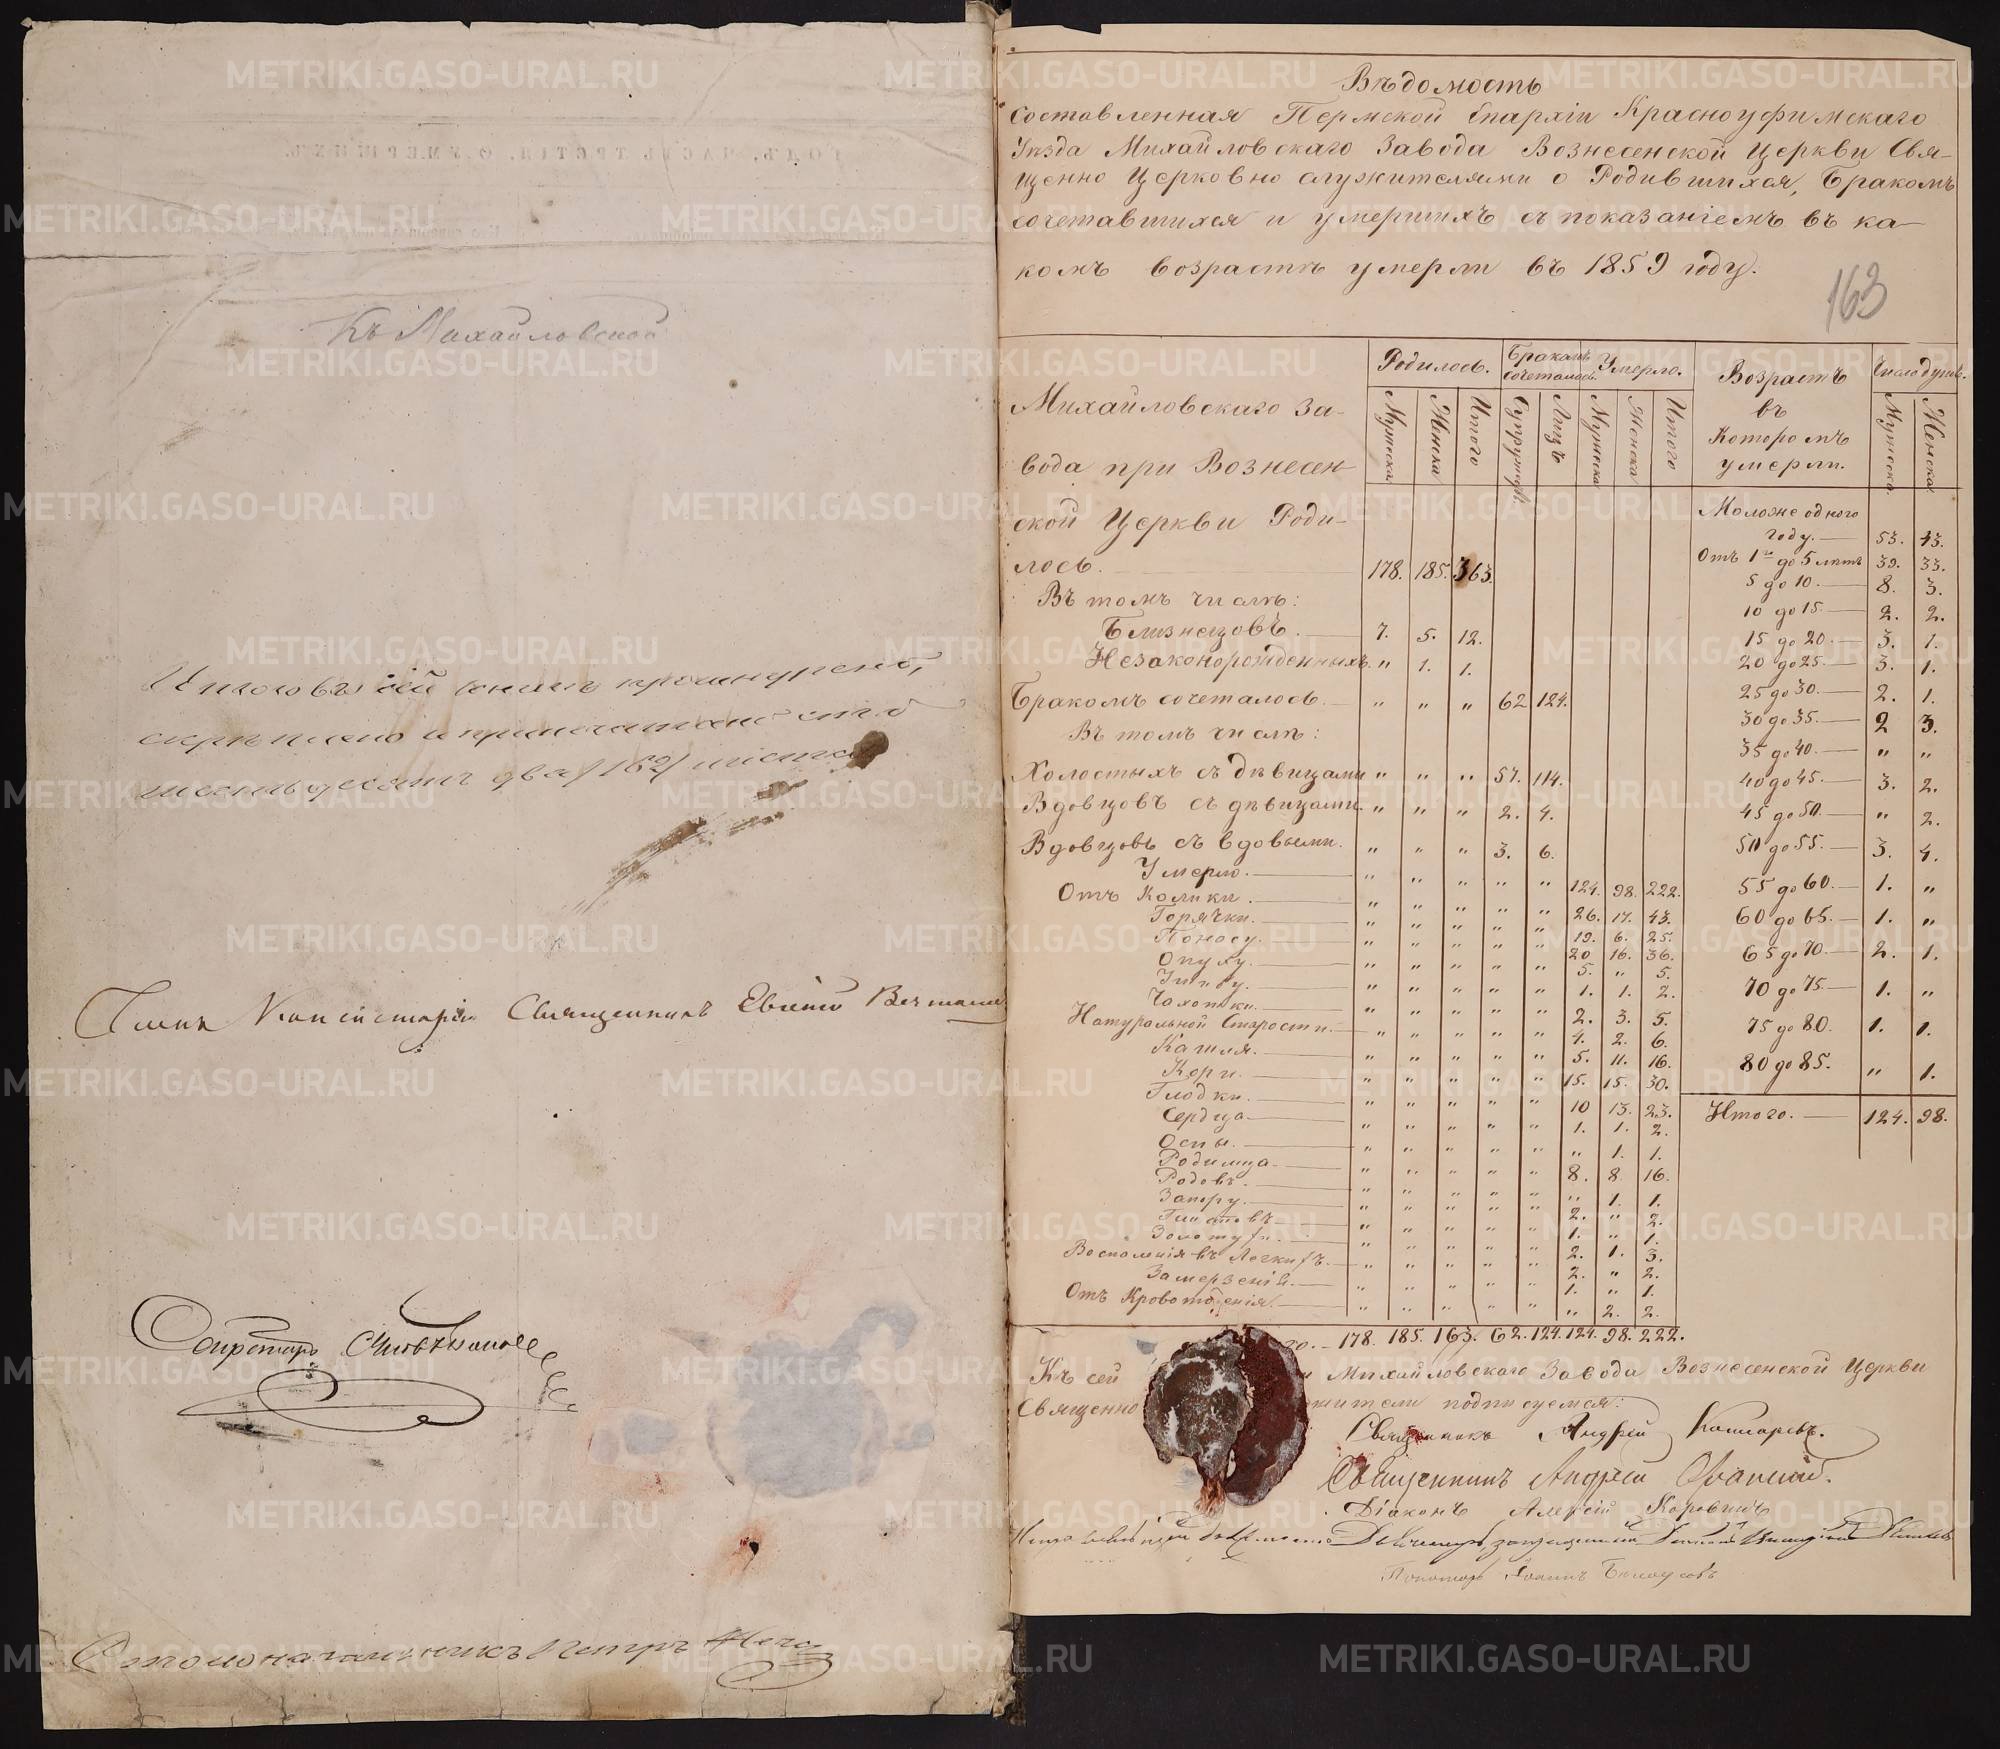 Къ Михайловской
Итого въ сей книгѣ прошнуровано,
скрѣплено и припечатано сто
шестьдесятъ два /162/ листа
Членъ Консисторіи Священникъ Евгеній
Секретарь
Столоначальникъ Петръ
Вѣдомость
составленная Пермской Епархіи Красноуфимскаго
Уѣзда Михайловскаго Завода Вознесенской Церкви Свя-
щенно Церковно служителями о Родившихся, Бракомъ
сочетавшихся и умершихъ съ показаніемъ въ ка-
комъ возрастѣ умерли въ 1859 году.
163
Родилось. Бракомъ сочеталось. Умерло. Возрастъ въ Которомъ умерли. Число душъ.
Мужска Женска Итого Супружествъ Лицъ Мужска Женска Итого Мужска. Женска
Михайловскаго За-
вода при Вознесен-
ской Церкви Роди-
лось. 178. 185. 363.
Въ томъ числѣ:
Близнецовъ. 7. 5. 12.
Незаконорожденныхъ. " 1. 1.
Бракомъ сочеталось. " " " 62 124.
Въ томъ числѣ:
Холостыхъ съ дѣвицами " " " 57. 114.
Вдовцовъ съ дѣвицами. " " " 2. 4.
Вдовцовъ съ вдовыми. " " " 3. 6.
Умерло. " " " " " 124. 98. 222.
Отъ Колики. " " " " " 26. 17. 43.
Горячки. " " " " " 19. 6. 25.
Поносу. " " " " " 20 16. 36.
Опуху. " " " " " 5. " 5.
" " " " " 1. 1. 2.
Чахотки. " " " " " 2. 3. 5.
Натуральной Старости. " " " " " 4. 2. 6.
Кашля. " " " " " 5. 11. 16.
Кори. " " " " " 15. 15. 30.
Глодки. " " " " " 10 13. 23.
Сердца " " " " " 1. 1. 2.
Оспы. " " " " " " 1. 1.
Родимца " " " " " 8. 8. 16.
Родовъ. " " " " " " 1. 1.
Запору. " " " " " 2. " 2.
" " " " " 1. " 1.
Золотухи. " " " " " 2. 1. 3.
Воспаленія въ Легкихъ. " " " " " 2. " 2.
Замерзенія. " " " " " 1. " 1.
Отъ Кровотеченія. " " " " " " 2. 2.
178. 185. 163. 62. 124. 124. 98. 222.
Моложе одного
году. 53. 43.
Отъ 1го до 5 лѣтъ 39. 33.
5 до 10. 8. 3.
10 до 15. 2. 2.
15 до 20. 3. 1.
20 до 25. 3. 1.
25 до 30. 2. 1.
30 до 35. 2 3.
35 до 40. " "
40 до 45. 3. 2.
45 до 50. " 2.
50 до 55. 3. 4.
55 до 60. 1. "
60 до 65. 1. "
65 до 70. 2. 1.
70 до 75. 1. "
75 до 80. 1. 1.
80 до 85. " 1.
Итого. 124. 98.
Къ сей Михайловскаго Завода Вознесенской Церкви
Священно жители подписуемся:
Священникъ Андрей
Священникъ Андрей
Діаконъ Алексій
Пономарь Іоаннъ Белоусовъ
METRIKI.GASO-URAL.RU